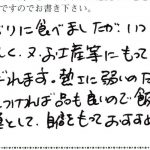 ですのでお書き下さい。
りに食べましたが、いつ
しく、又、お土産等にもって
ばれます。熱工に弱いのだ
つければ品も良いので飯
産として、自信をもっておすすめ